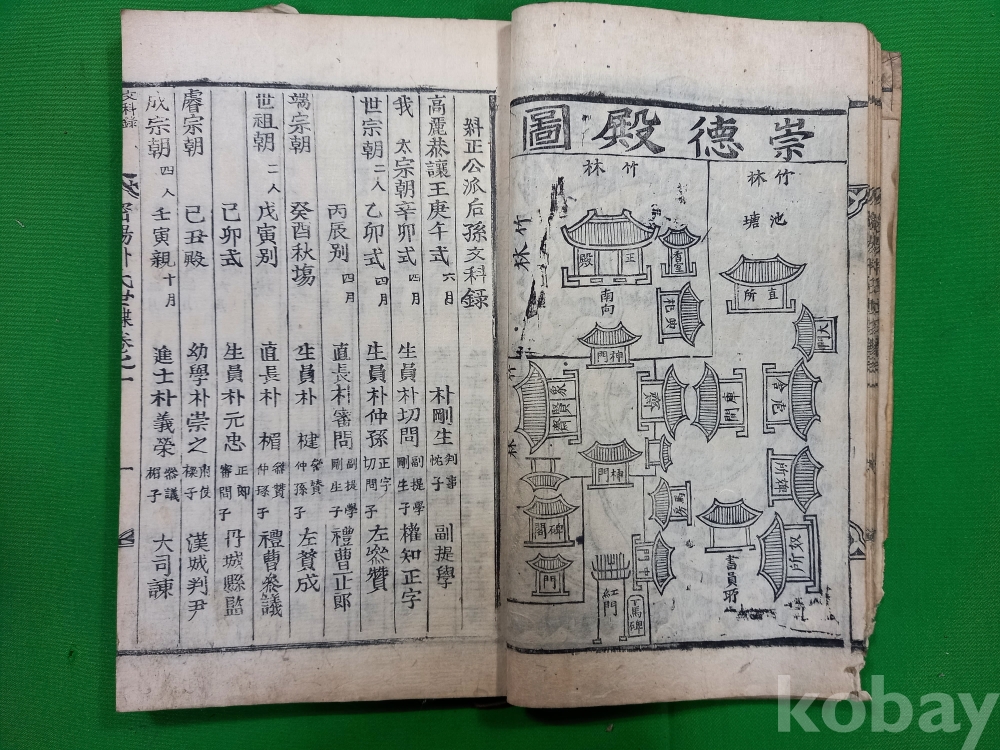 崇德殿圖
竹林
池塘
直所
大門
竹林
竹林
正殿
香室
南向
神門
庫間
象賢齋
神門
碑閣
門
馬房
紅門
下馬碑
書員所
奴所
糾正公派后孫文科録
高麗恭讓王庚午式 六月 朴剛生 判事 帖子 副提學
我 太宗朝辛卯式 四月 生員朴切問 副提學 剛生子 權知正字
世宗朝 二人 乙卯式 四月 生員朴仲孫 正字 切問子 左參贊
丙辰別 四月 直長朴審問 副提學 剛生子 禮曹正郎
端宗朝 癸酉秋塲 生員朴楗 參贊 仲孫子 左贊成
世祖朝 二人 戊寅別 直長朴楣 參贊 仲孫子 禮曹參議
己卯式 生員朴元忠 正郎 審問子 丹城縣監
睿宗朝 己丑殿 幼學朴崇之 漢城判尹
成宗朝 四人 壬寅親 十月 進士朴義榮 參議 楣子 大司諫
文科錄
密陽朴氏世牒卷之一
kobay